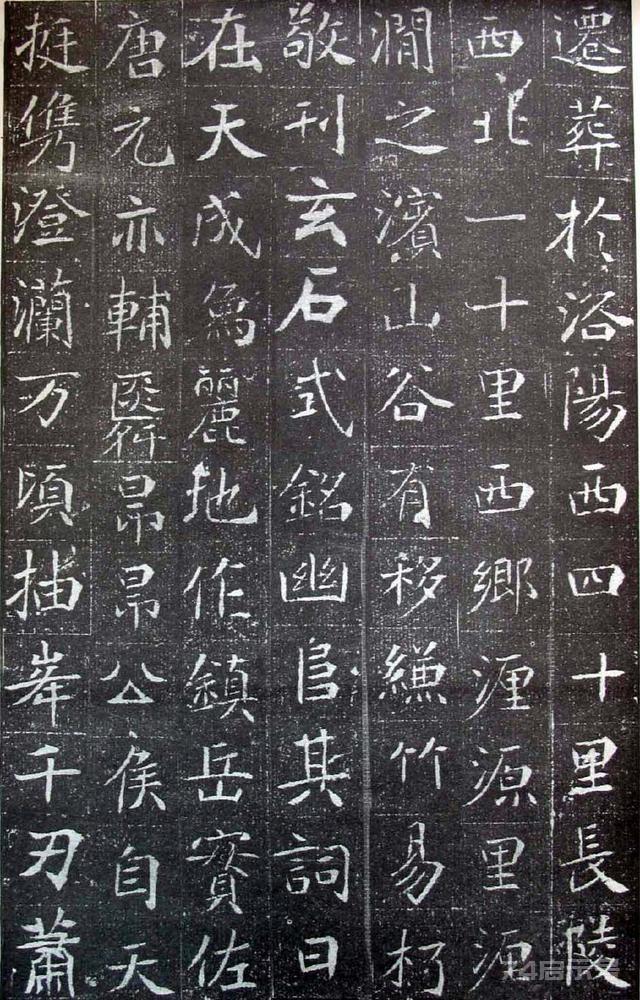 遷葬於洛陽西四十里長陵
西北一十里西鄉瀍源里
澗之濱山谷有移縑竹易朽
敬刊玄石式銘幽其詞曰
在天成象麗地作鎮岳賓佐
唐元亦輔昂昂公侯自天
挺隽澄瀾万頃插峯千刃蕭